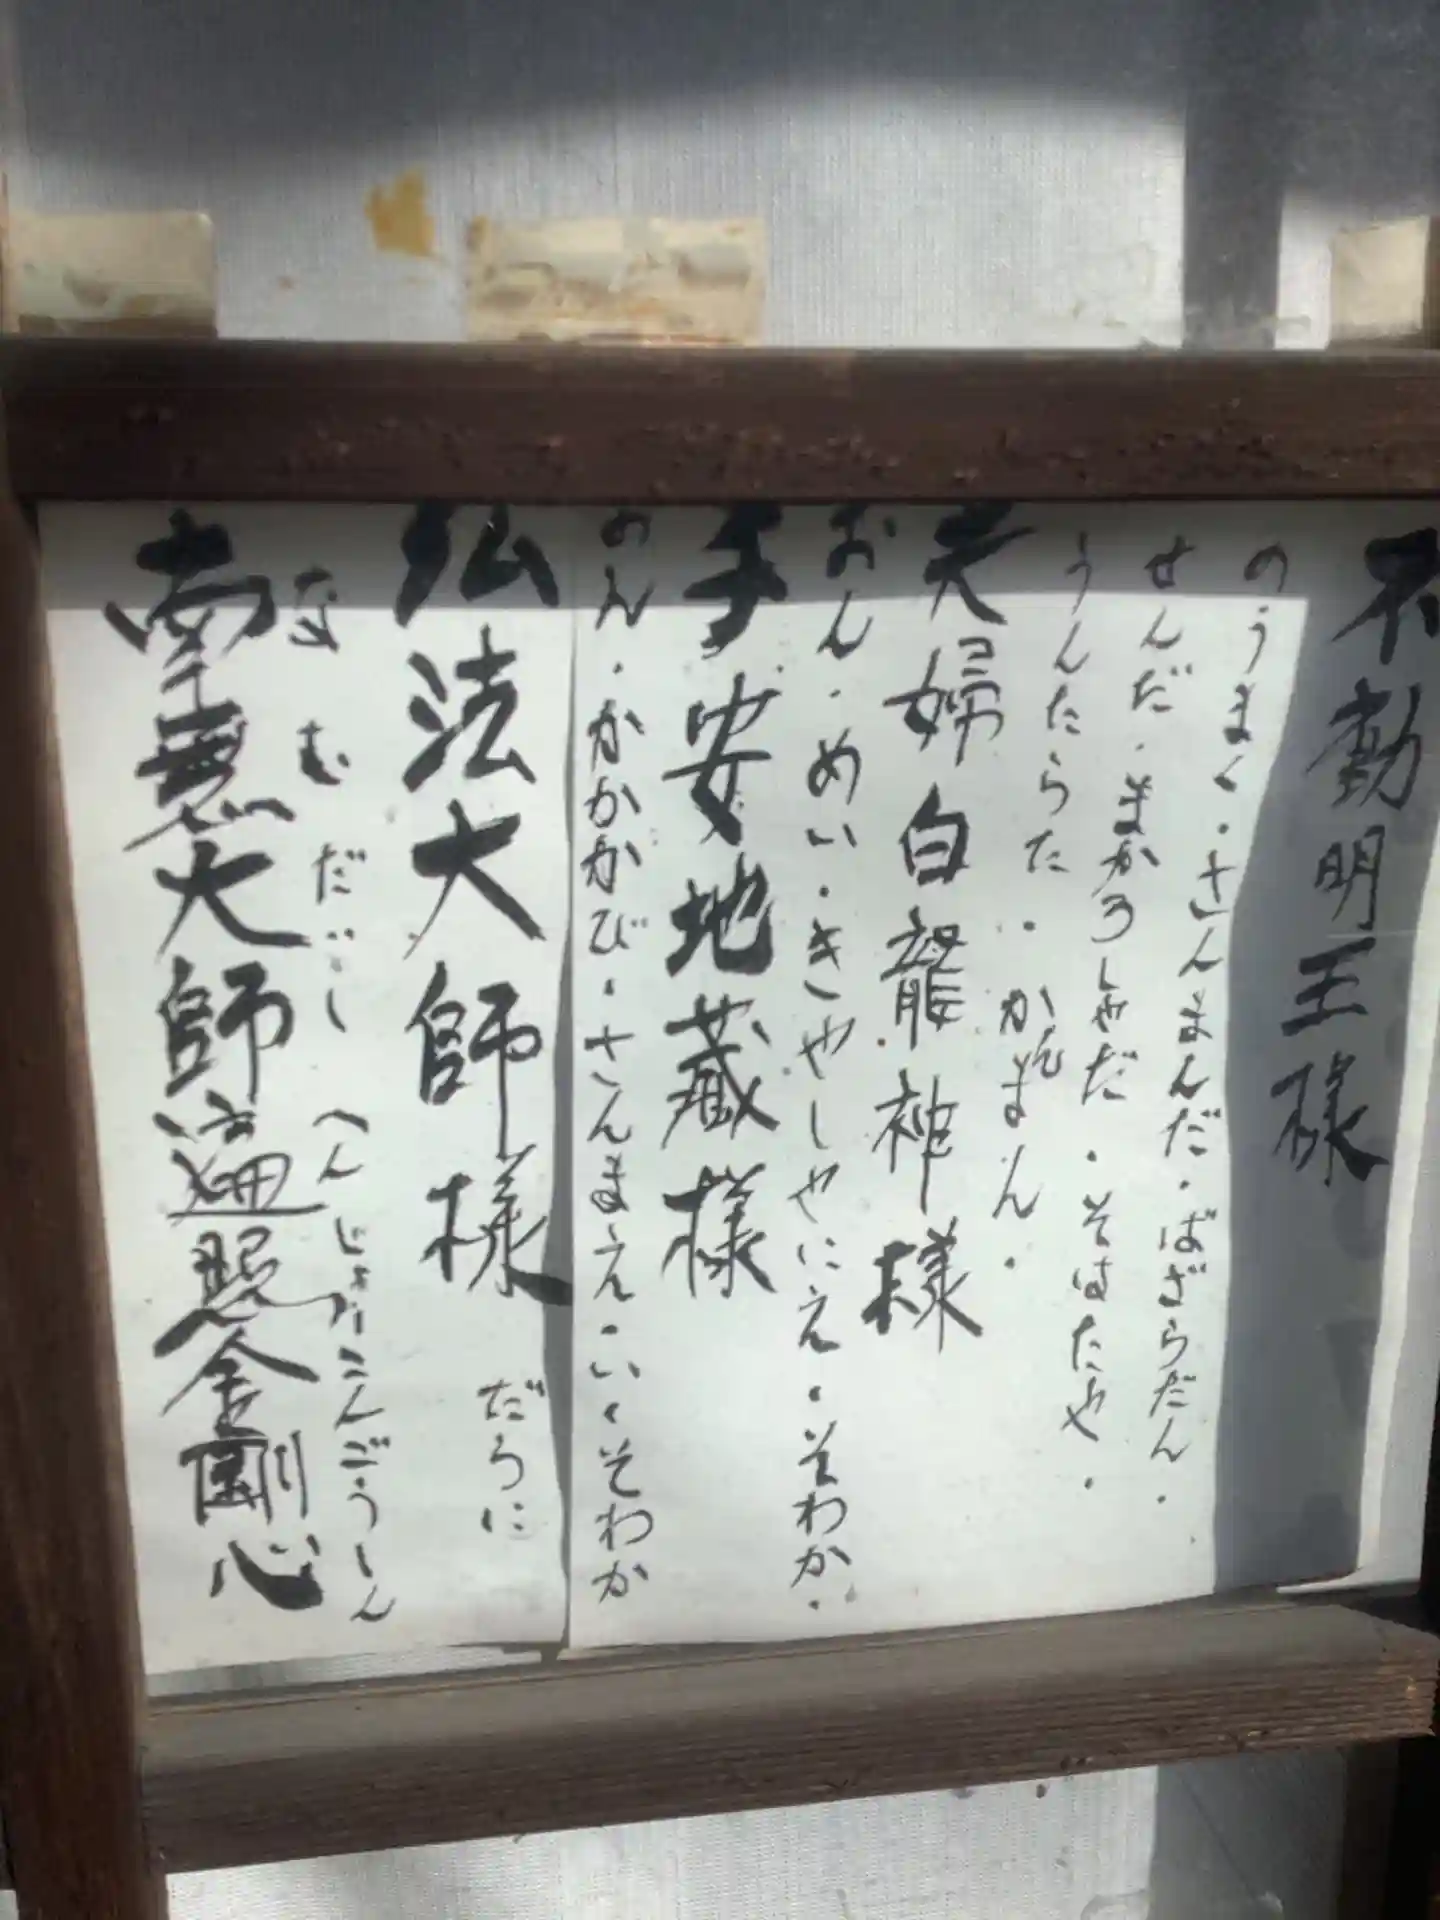 不動明王様
のうまく・さんまんだ・ばざらだん・
せんだ・まかろしゃだ・そはたや・
うんたらた・かんまん・
夫婦白龍神様
おん・めい・きやしやにえ・そわか・
子安地蔵様
おん・かかかび・さんまえ・い・そわか
弘法大師様
だらに
なむだいしへんじょうこんごうしん
南無大師遍照金剛心